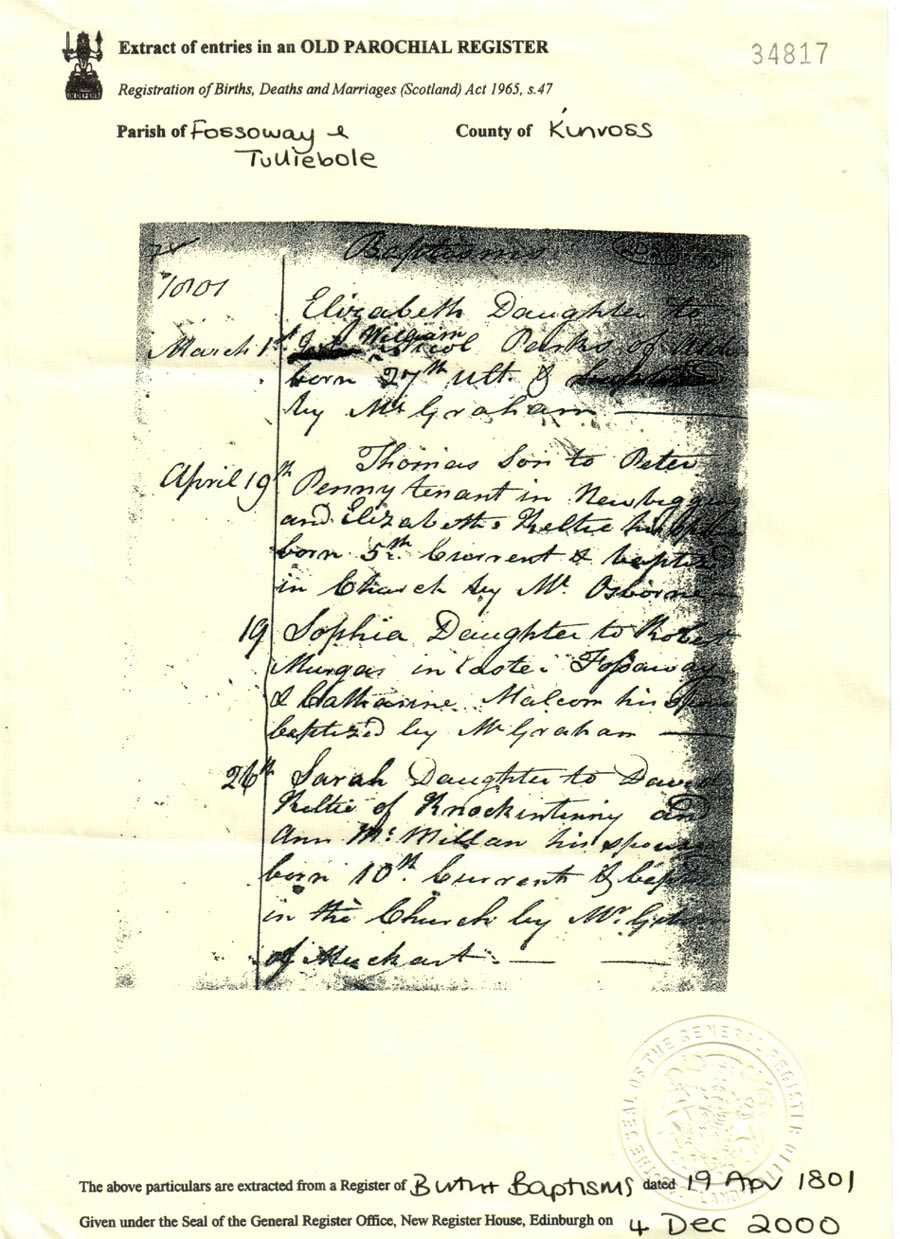 Extract of entries in an OLD PAROCHIAL REGISTER
34817
Registration of Births, Deaths and Marriages (Scotland) Act 1965, s.47
Parish of Fossoway &
Tulliebole
County of Kinross
Baptisms
1801
Elizabeth Daughter to
March 1st William Nicol Parks of
born 27th Ult. &
by Mr Graham
April 19th Thomas Son to Peter
Penny tenant in Newbigging
and Elizabeth Keltie his
born 5th Current & baptized
in Church by Mr. Osborne
19 Sophia Daughter to Robert
in Easter Fossaway
& Catharine Malcom his Spouse
baptized by Mr Graham
26th Sarah Daughter to David
Keltie of Knockintinny and
Ann McMillan his spouse
born 10th Current & baptized
in the Church by Mr.
of Muckart
THE SEAL OF THE GENERAL REGISTER OFFICE
The above particulars are extracted from a Register of Births Baptisms dated 19 Apr 1801
Given under the Seal of the General Register Office, New Register House, Edinburgh on 4 Dec 2000